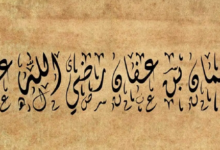 مان بن عفان رضي الله ع